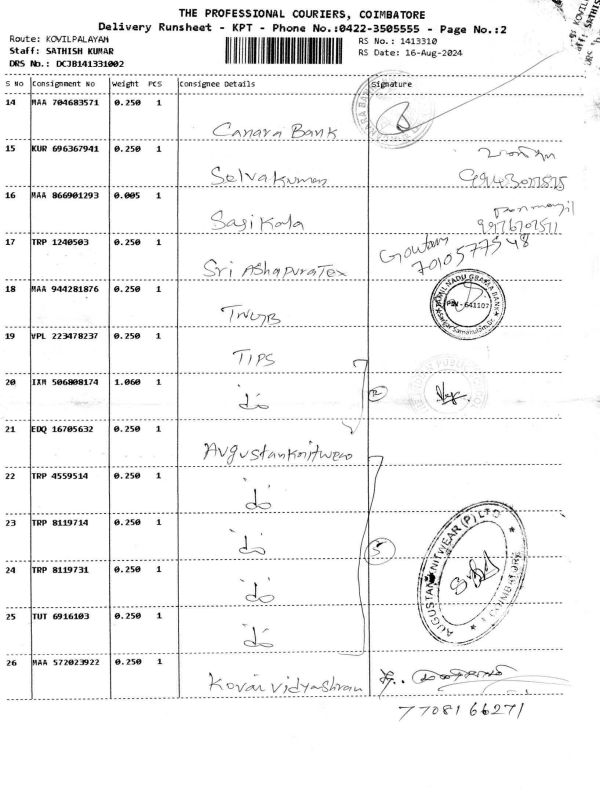 THE PROFESSIONAL COURIERS, COIMBATORE
Delivery Runsheet - KPT - Phone No.:0422-3505555 - Page No.:2
Route: KOVILPALAYAM
Staff: SATHISH KUMAR
DRS No.: DCJB141331002
RS No.: 1413310
RS Date: 16-Aug-2024
S No Consignment No Weight PCS Consignee Details Signature
14 MAA 704683571 0.250 1 Canara Bank
15 KUR 696367941 0.250 1 Selvakumar
16 MAA 866901293 0.005 1 Sasikala
17 TRP 1240503 0.250 1 Sri AshapuraTex Goutam 7010577548
18 MAA 944281876 0.250 1 TNGB
TAMIL NADU GRAMA BANK
PIN - 641107
19 VPL 223478237 0.250 1 TIPS
20 IXM 506808174 1.060 1 do 2
21 EDQ 16705632 0.250 1 Augustanknitwear
22 TRP 4559514 0.250 1 do
23 TRP 8119714 0.250 1 do 5
AUGUSTAN KNITWEAR (P) LTD
COIMBATORE
24 TRP 8119731 0.250 1 do
25 TUT 6916103 0.250 1 do
26 MAA 572023922 0.250 1 Kovai Vidyashram
7708166271